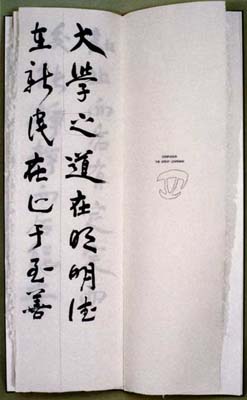 大學之道在明明德
在新民在止于至善
CONFUCIUS
THE GREAT LEARNING